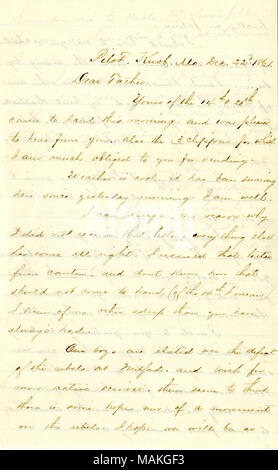 Pilot Knob, Mo. Dec. 22nd 1861
Dear Father
Yours of the 14th & 20th
came to hand this morning and was pleased
to hear from you. also the 3 clippers for which
I am much obliged to you for sending.
Weather is cool. it has been snowing
here since yesterday morning. I am well.
I can assign no reason why
I did not receive that letter. everything else
has come all right. I received that letter
from canton. and dont know how that
should not come to hand (of the 10th I mean)
I know of no other address than you have
always had.
Our boys are elated on the defeat
of the rebels at Milford. and wish for
more active service. them seem to think
there is some hopes now of a movement
on the rebels. I hope we will be as
alamy
Image ID: MAKGF3
www.alamy.com